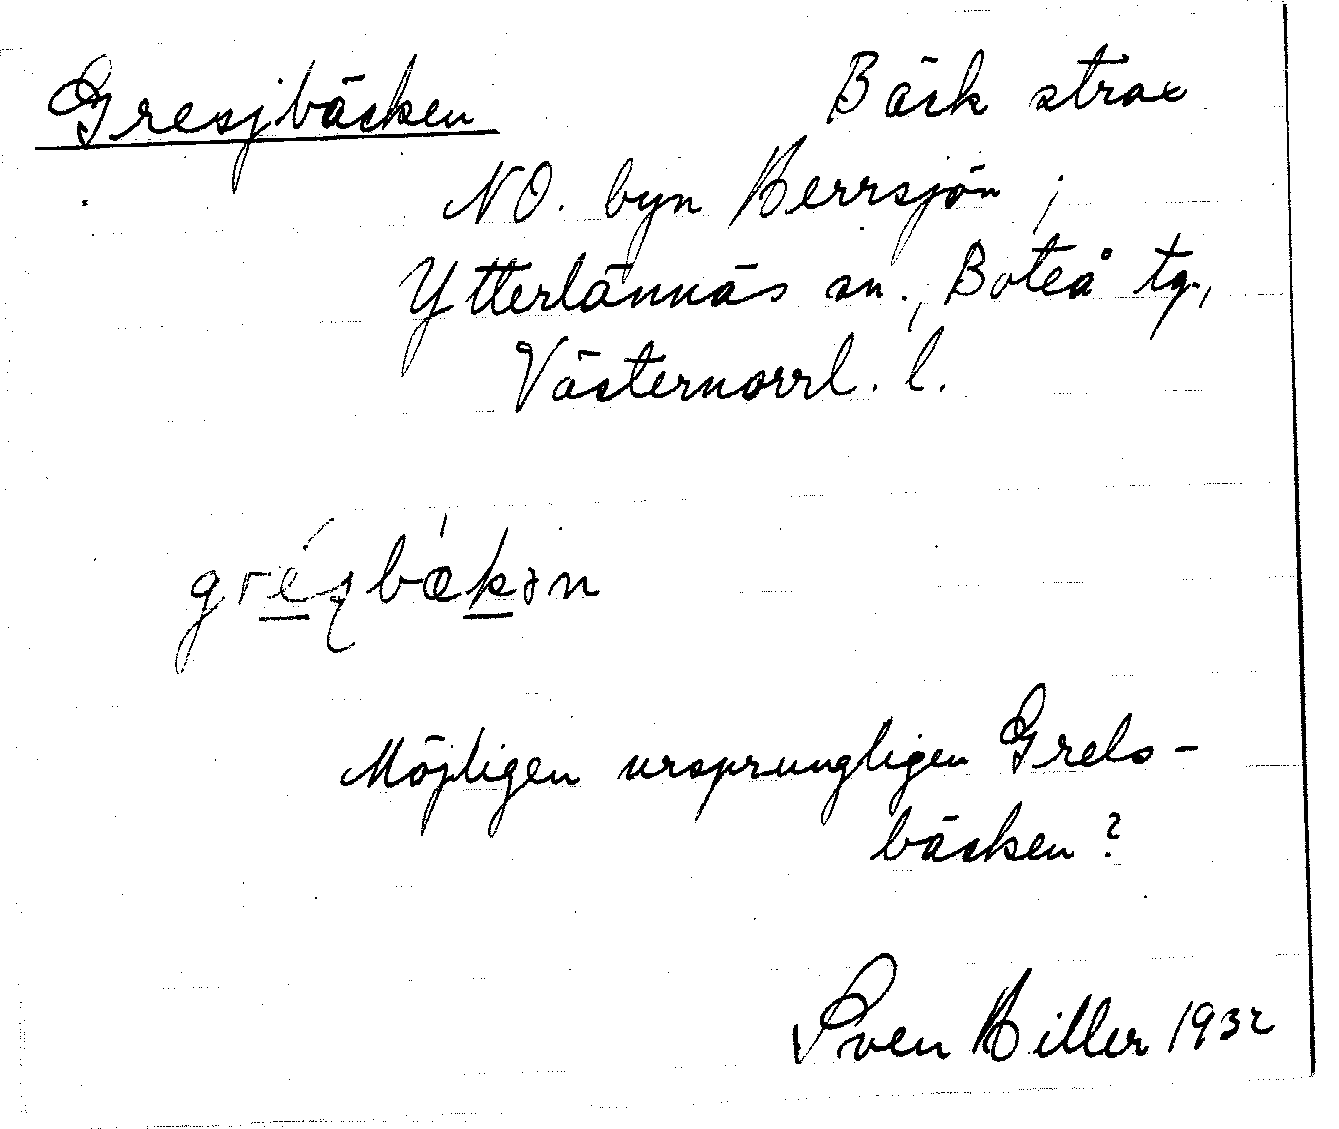 Gresjbäcken Bäck strax
NO. byn Herrsjön ;
Ytterlännäs sn., Boteå tg.,
Västernorrl. l.
gréʂbǽkən
Möjligen ursprungligen Grels-
bäcken?
Sven Hiller 1932